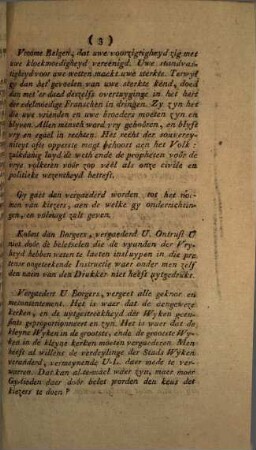 ( 3 )
Vroome Belgen, dat uwe voorzigtigheyd zig met
uwe kloekmoedigheyd vereenigd. Uwe standvas-
tigheyd voor uwe wetten maekt uwe sterkte. Terwyl
gy dan het gevoelen van uwe sterkte kend, doed
den moed desselfs overtuyginge in het hert
der edelmoedige Franschen in dringen. Zy zyn het
die uwe vrienden en uwe broeders moeten zyn en
blyven. Allen mensch word vry geboren, en blyft
vry en egael in rechten. Het recht der souverey-
niteyt ofte oppersie magt behoort aen het Volk:
zulkdanig luyd de weth ende de propheten voor de
vrye volkeren voor zoo veel als onze civile en
politieke wezentheyd betreft.
Gy gaet dan vergaederd worden, tot het noe-
men van kiezers, aen de welke gy onderrichtin-
gen, en volmagt zult geven.
Kalme dan Borgers, vergaederd U. Ontrust U
niet door de beletselen die de vyanden der Vry-
heyd hebben weten te laeten insluypen in die pre-
tense ongeteekende Instructie waer onder men zelf
den naem van den Drukker niet heeft uytgedrukt.
Vergaedert U Borgers, vergeet alle geknor en
misnoentement. Het is waer dat de aengeweze
kerken, en de uytgestrektheyd der Wyken geen-
sints geproportionneert en zyn. Het is waer dat de
kleyne Wyken in de grootste, ende de grootste Wy-
ken in de kleyne kerken moeten vergaederen. Men
heeft al willens de verdeylinge der Stads Wyken
veranderd, vermeynende U-L. daer mede te ver-
warren. Dat kan altemael waer zyn, maer moet
Gylieden daer door belet worden den keus der
kiezers te doen?